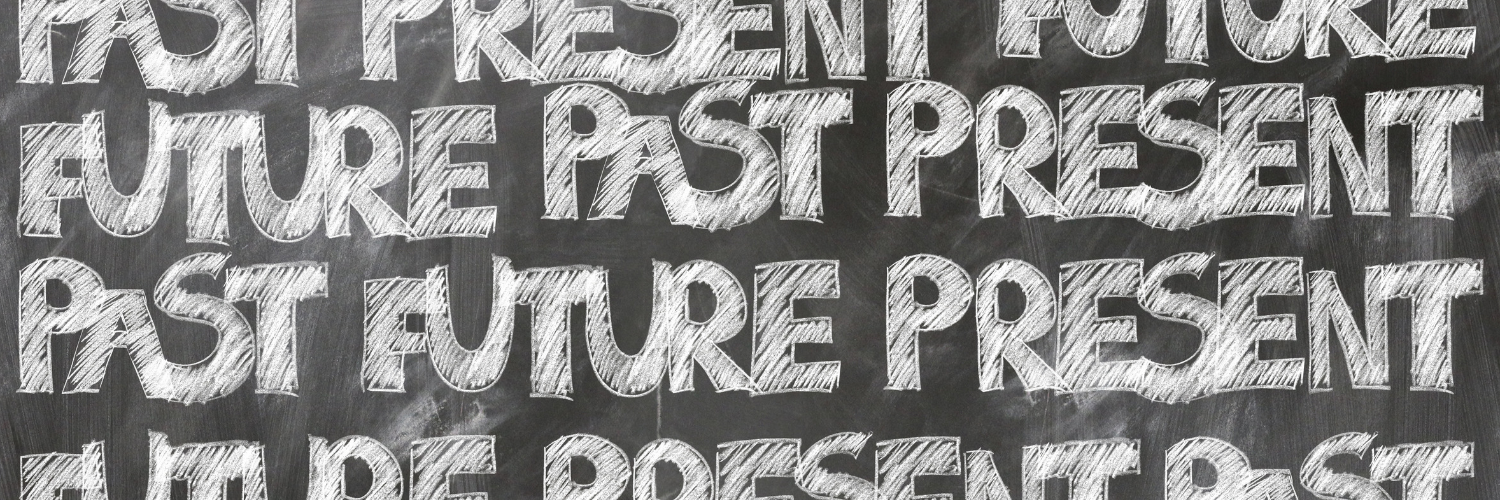 PAST PRESENT FUTURE
FUTURE PAST PRESENT
PAST FUTURE PRESENT
FUTURE PRESENT PAST